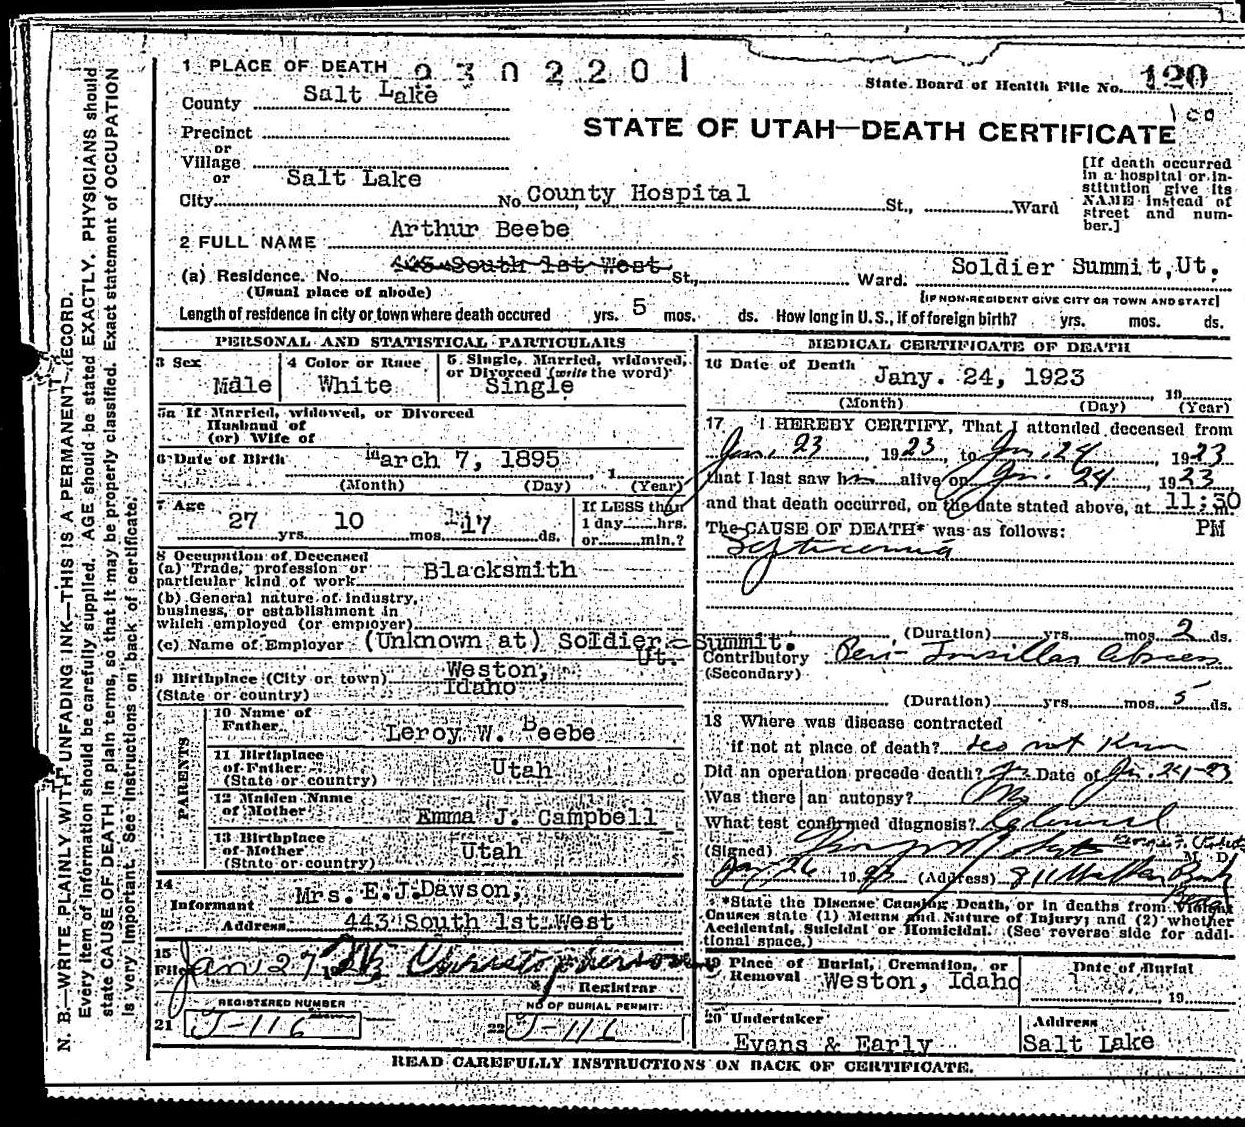 1 PLACE OF DEATH 2302201
State Board of Health File No. 120
County Salt Lake
100
STATE OF UTAH—DEATH CERTIFICATE
Precinct
or
Village
or
City Salt Lake No. County Hospital St., Ward
[If death occurred in a hospital or institution give its NAME instead of street and number.]
2 FULL NAME Arthur Beebe
(a) Residence. No. 445 South 1st West St., Ward. Soldier Summit, Ut.
(Usual place of abode) [IF NON-RESIDENT GIVE CITY OR TOWN AND STATE]
Length of residence in city or town where death occured yrs. 5 mos. ds. How long in U. S., if of foreign birth? yrs. mos. ds.
PERSONAL AND STATISTICAL PARTICULARS
3 Sex Male
4 Color or Race White
5. Single, Married, widowed, or Divorced (write the word) Single
5a If Married, widowed, or Divorced
Husband of
(or) Wife of
6 Date of Birth March 7, 1895, 1
(Month) (Day) (Year)
7 Age 27 yrs. 10 mos. 17 ds.
If LESS than
1 day hrs.
or min.?
8 Occupation of Deceased
(a) Trade, profession or
particular kind of work Blacksmith
(b) General nature of industry,
business, or establishment in
which employed (or employer)
(c) Name of Employer (Unknown at) Soldier Summit. Ut.
9 Birthplace (City or town) Weston,
(State or country) Idaho
PARENTS
10 Name of
Father Leroy W. Beebe
11 Birthplace
of Father Utah
(State or country)
12 Maiden Name
of Mother Emma J. Campbell
13 Birthplace
of Mother Utah
(State or country)
14
Informant Mrs. E.J.Dawson,
Address 443 South 1st West
15
Filed Jan 27 19 Christopherson
Registrar
REGISTERED NUMBER
21 J-116
NO OF BURIAL PERMIT
22 J-116
MEDICAL CERTIFICATE OF DEATH
16 Date of Death Jany. 24, 1923, 19
(Month) (Day) (Year)
17 I HEREBY CERTIFY, That I attended deceased from
Jan. 23, 1923, to Jan. 24, 1923
that I last saw him alive on Jan. 24, 1923
and that death occurred, on the date stated above, at 11:30 m.
The CAUSE OF DEATH* was as follows: PM
Septicemia
(Duration) yrs. mos. 2 ds.
Contributory Peri-Tonsillar Abscess
(Secondary)
(Duration) yrs. mos. 5 ds.
18 Where was disease contracted
if not at place of death? do not know
Did an operation precede death? Date of Jan. 24-23
Was there an autopsy? No
What test confirmed diagnosis?
(Signed) M D
Jan. 26 19 (Address) 811 Walker Bank
*State the Disease Causing Death, or in deaths from Violent
Causes state (1) Means and Nature of Injury; and (2) whether
Accidental, Suicidal or Homicidal. (See reverse side for addi-
tional space.)
19 Place of Burial, Cremation, or
Removal Weston, Idaho
Date of Burial
, 19
20 Undertaker
Evans & Early
Address
Salt Lake
READ CAREFULLY INSTRUCTIONS ON BACK OF CERTIFICATE.
N. B.—WRITE PLAINLY WITH UNFADING INK—THIS IS A PERMANENT RECORD.
Every item of information should be carefully supplied. AGE should be stated EXACTLY. PHYSICIANS should
state CAUSE OF DEATH in plain terms, so that it may be properly classified. Exact statement of OCCUPATION
is very important. See instructions on back of certificate.